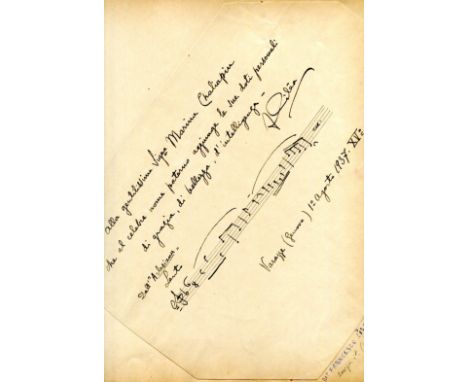 Alla gentilissima Sig.na Marina Chaliapin
che al celebre nome paterno aggiunge le sue doti personali
di grazia, di bellezza, d'intelligenza -
F. Cilèa
Dall'"Arlesiana"
Lento
Varazze (Genova) 1º Agosto 1937. XVº